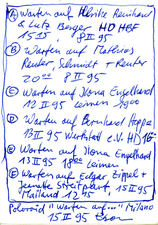 A) Warten auf Ulrike Reinhard
& Lutz Berger HD HBF
1515, 8 II 95
B) Warten auf Mathias
Reuter, Schmidt + Reuter
20 8 II 95
C) Warten auf Ilona Engelhard
12 II 95 Leimen 1900
D) Warten auf Bernhard Hoppe
13 II 95 Viertstatt e.V. HD
E) Warten auf Ilona Engelhard
13 II 95 Leimen
F) Warten auf Edgar Zippel +
Jeanette Streitparth, 15 II 95
Mailand 1245
Polaroid "Warten auf..." Milano
15 II 95